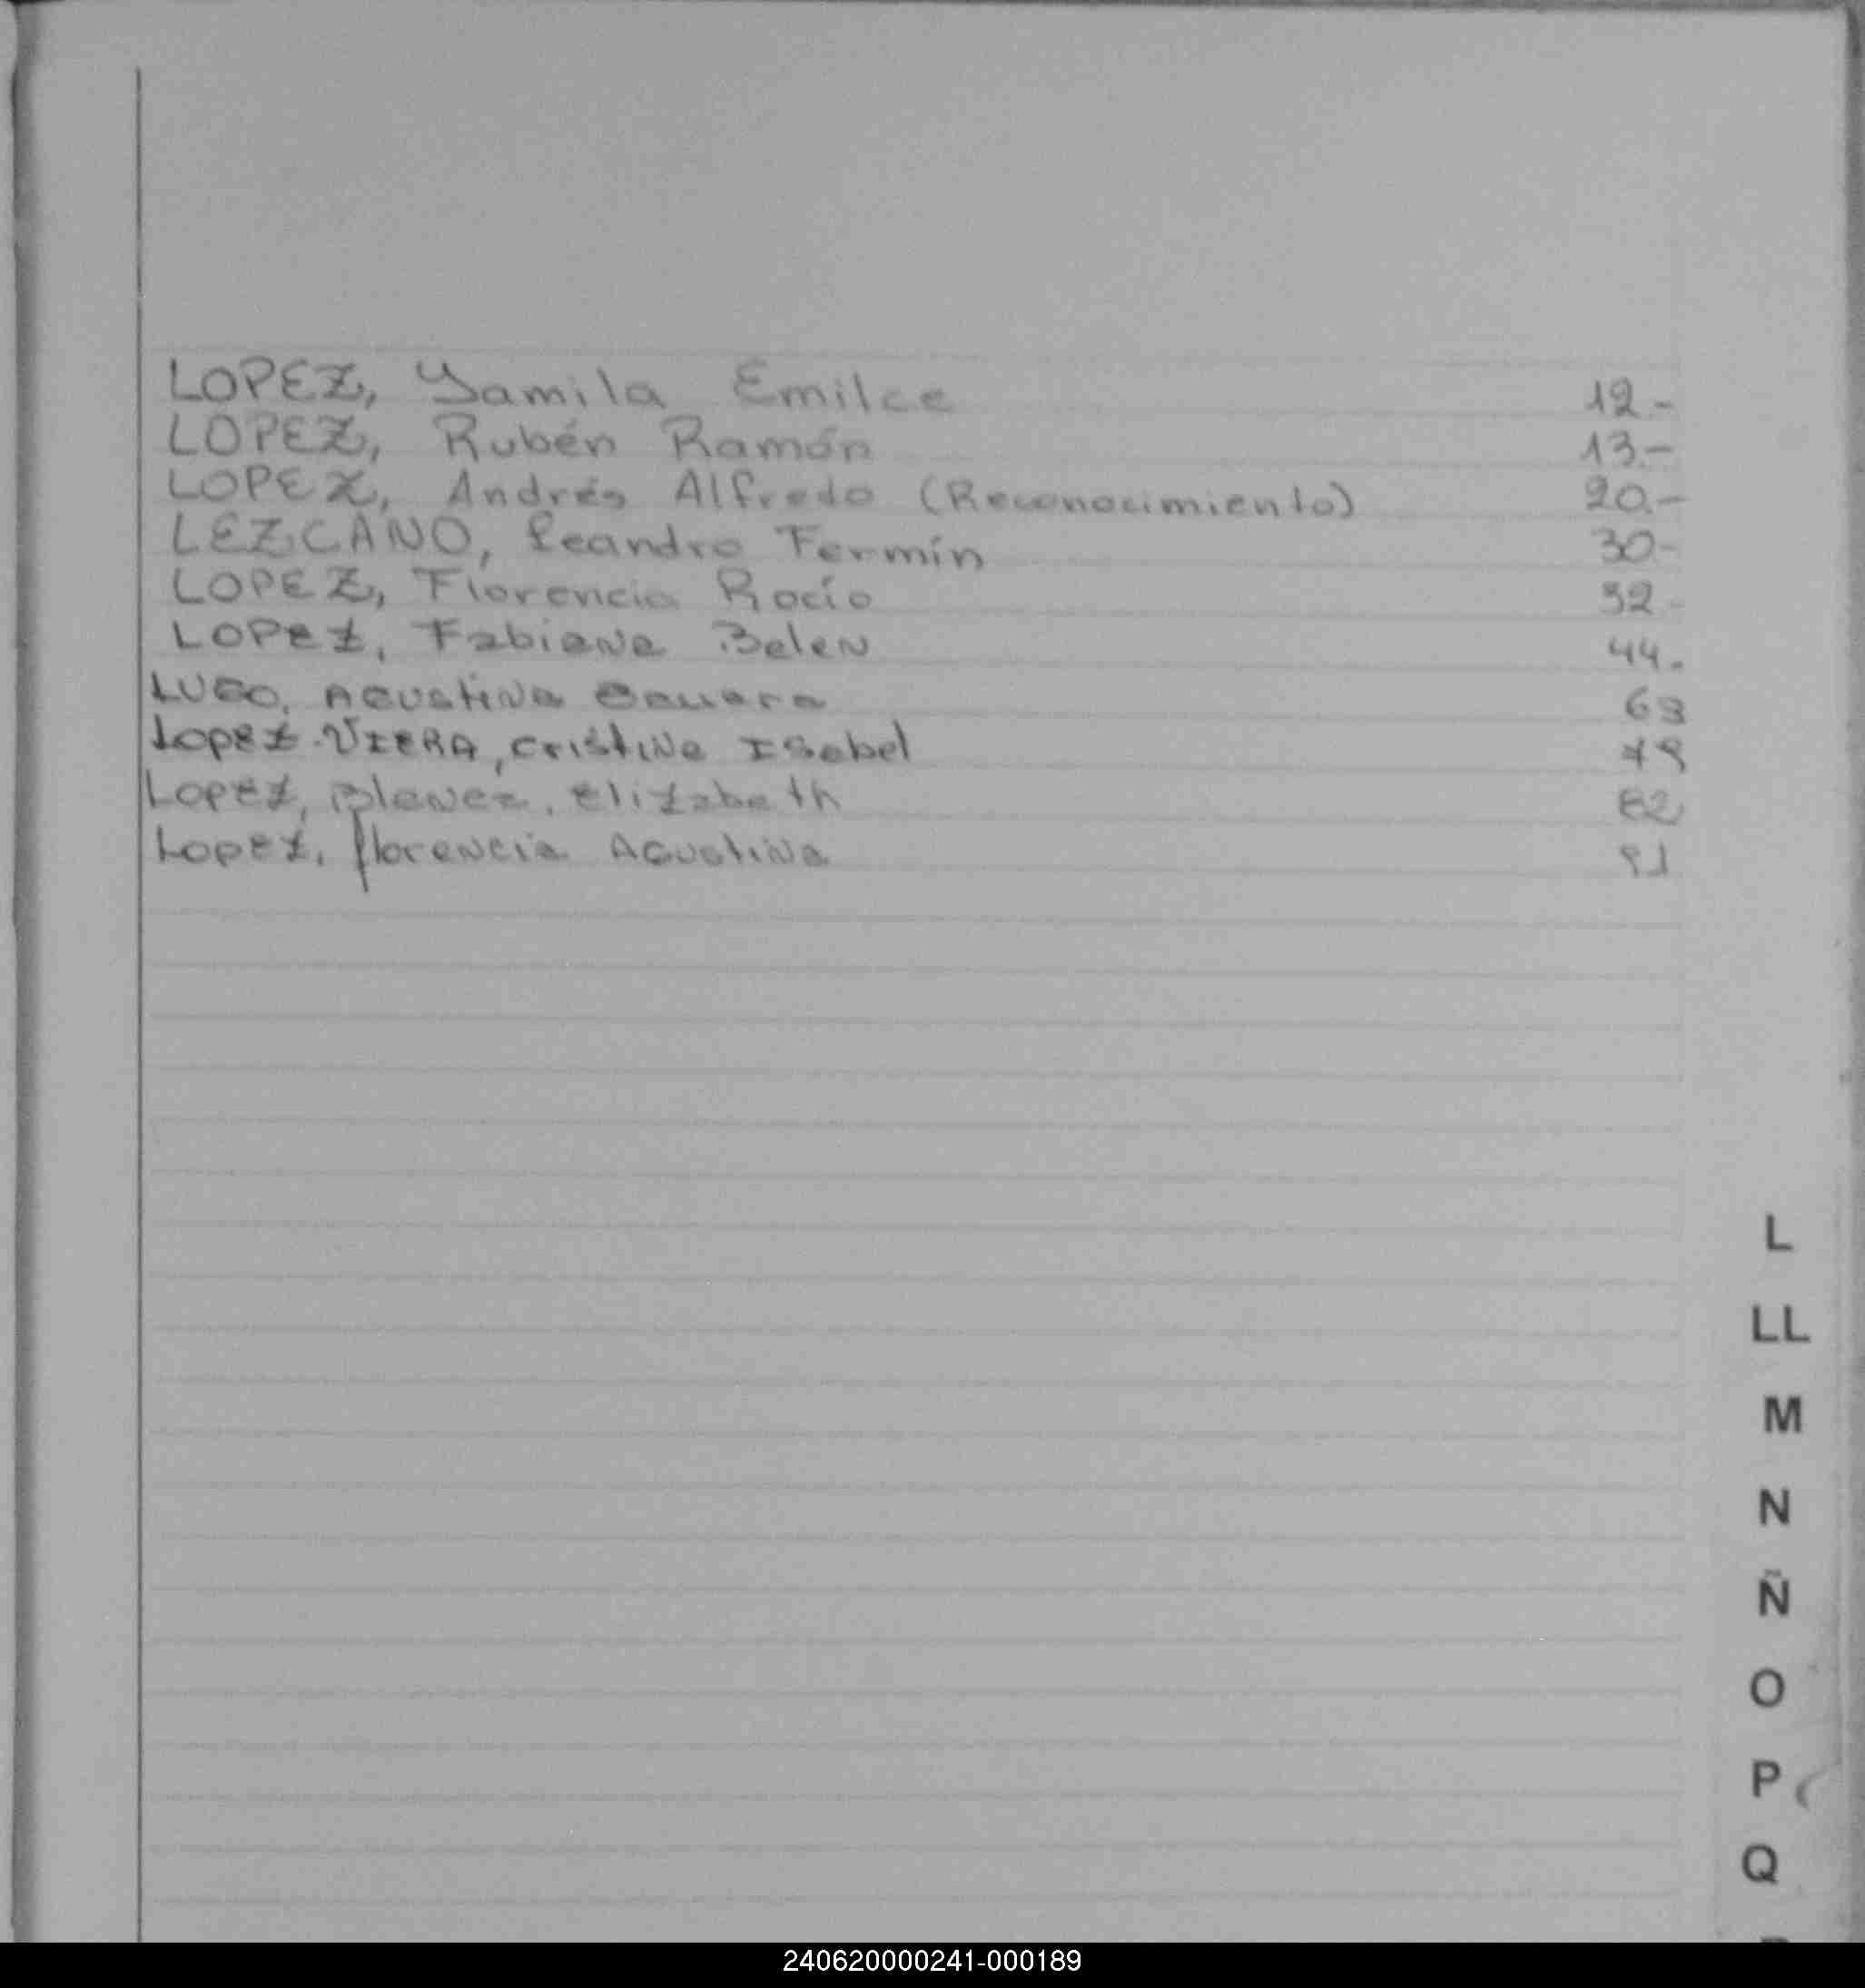 LOPEZ, Yamila Emilce 12.-
LOPEZ, Rubén Ramón 13.-
LOPEZ, Andrés Alfredo (Reconocimiento) 20.-
LEZCANO, Leandro Fermín 30-
LOPEZ, Florencia Rocío 32-
LOPEZ, Fabiana Belen 44.
LUGO, Agustina
Lopez VIERA, Cristina Isabel
Lopez, Blanca, Elizabeth 82
Lopez, florencia Agustina
L
LL
M
N
Ñ
O
P
Q
240620000241-000189